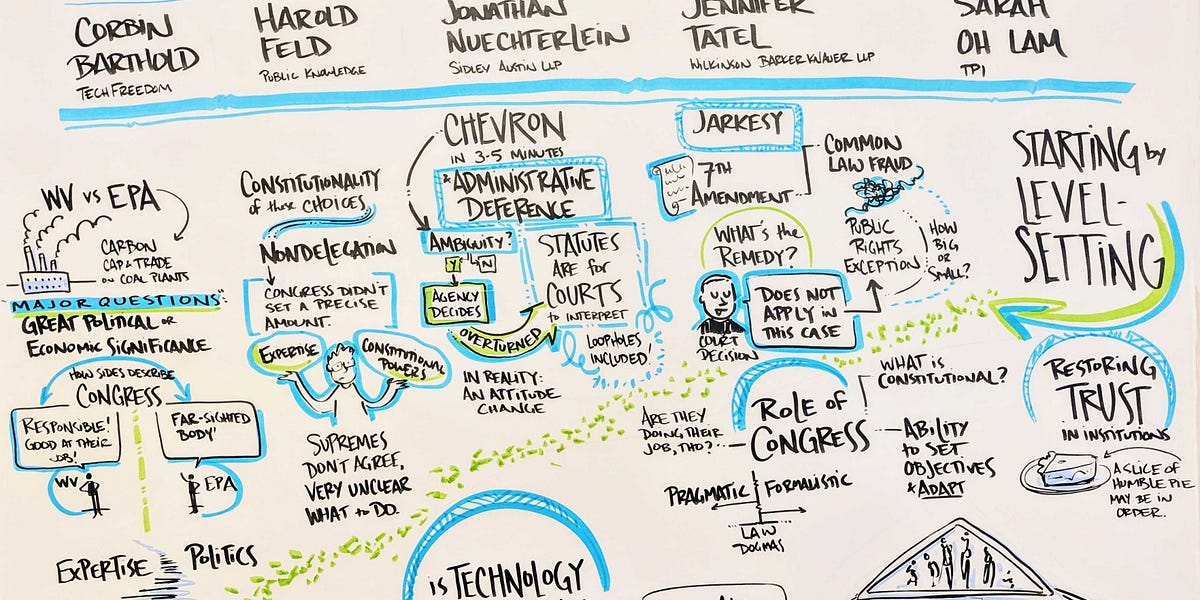 CORBIN
BARTHOLD
TECHFREEDOM
HAROLD
FELD
PUBLIC KNOWLEDGE
JONATHAN
NUECHTERLEIN
SIDLEY AUSTIN LLP
JENNIFER
TATEL
WILKINSON BARKER KNAUER LLP
SARAH
OH LAM
TPI
WV vs EPA
CARBON
CAP & TRADE
on COAL PLANTS
"MAJOR QUESTIONS":
GREAT POLITICAL or
ECONOMIC SIGNIFICANCE
HOW SIDES DESCRIBE
CONGRESS
RESPONSIBLE!
GOOD AT THEIR
JOB!
WV
FAR-SIGHTED
BODY'
EPA
EXPERTISE
POLITICS
CONSTITUTIONALITY
of these CHOICES
NONDELEGATION
CONGRESS DIDN'T
SET A PRECISE
AMOUNT.
EXPERTISE
CONSTITUTIONAL
POWERS
SUPREMES
DON'T AGREE,
VERY UNCLEAR
WHAT to DO.
CHEVRON
IN 3-5 MINUTES
*ADMINISTRATIVE
DEFERENCE
AMBIGUITY?
Y
N
AGENCY
DECIDES
OVERTURNED
STATUTES
ARE for
COURTS
to INTERPRET
LOOPHOLES
INCLUDED!
IN REALITY:
AN ATTITUDE
CHANGE
IS TECHNOLOGY
JARKESY
7TH
AMENDMENT
COMMON
LAW FRAUD
PUBLIC
RIGHTS
EXCEPTION
HOW
BIG
OR
SMALL?
WHAT'S the
REMEDY?
DOES NOT
APPLY in
THIS CASE
COURT
DECISION
STARTING by
LEVEL-
SETTING
ARE THEY
DOING THEIR
JOB, THO?
ROLE OF
CONGRESS
WHAT IS
CONSTITUTIONAL?
ABILITY
to SET
OBJECTIVES
& ADAPT
PRAGMATIC
FORMALISTIC
LAW
DOGMAS
RESTORING
TRUST
IN INSTITUTIONS
A SLICE OF
HUMBLE PIE
MAY BE IN
ORDER.